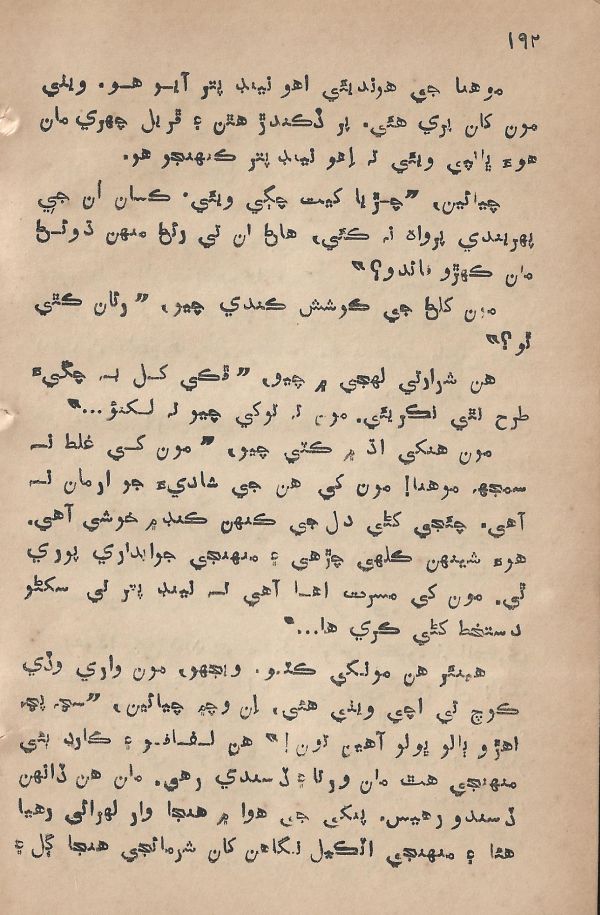 ١٩٢
موهنا جي هوندئي اهو ليٽر پتر آيو هو. ويٺي
مون کان پري هئي. پر ڏڪندڙ هٿن ۽ ڦريل چهري مان
هوءَ ڀانپي ويٺي ته اهو ليٽر پتر ڪنهنجو هو.
چيائين، ”چڙيا کيت چڳي ويئي. ڪسان اُن جي
پهريندي پرواهه نه ڪئي، هاڻ ان تي رئڻ منهن ڏوئڻ
مان ڪهڙو فائدو؟“
مون کلڻ جي ڪوشش ڪندي چيو، ”رئان ڪٿي
ٿو؟“
هن شرارتي لهجي ۾ چيو، ”ڏکي کل به چڱيءَ
طرح نٿي نڪرئي. مون نه توکي چيو ته لکنؤ...“
مون هنکي اڌ ۾ ڪٽي چيو، ”مون کي غلط نه
سمجهه موهنا! مون کي هن جي شاديءَ جو ارمان نه
آهي. چئجي کڻي دل جي ڪنهن ڪنڊ ۾ خوشي آهي.
هوءَ شينهن ڪلهي چڙهي ۽ منهنجي جوابداري پوري
ٿي. مون کي مسرت اها آهي ته ليٽر پتر تي سڪڻو
دستخط کڻي ڪري ها...“
هينئر هن مونکي ڪٽيو. ويجهو، مون واري وڏي
ڪوچ تي اچي ويٺي هئي، اِن وچ ۾ چيائين، ”سچ پچ
اهڙو ڀالو ڀولو آهين تون!“ هن لفافو ۽ ڪارڊ ٻئي
منهنجي هٿ مان ورتا ۽ ڏسندي رهي. مان هن ڏانهن
ڏسندو رهيس. پنکي جي هوا ۾ هنجا وار لهرائي رهيا
هئا ۽ منهنجي اٽڪيل نگاهن کان شرمائجي هنجا ڳل ۽